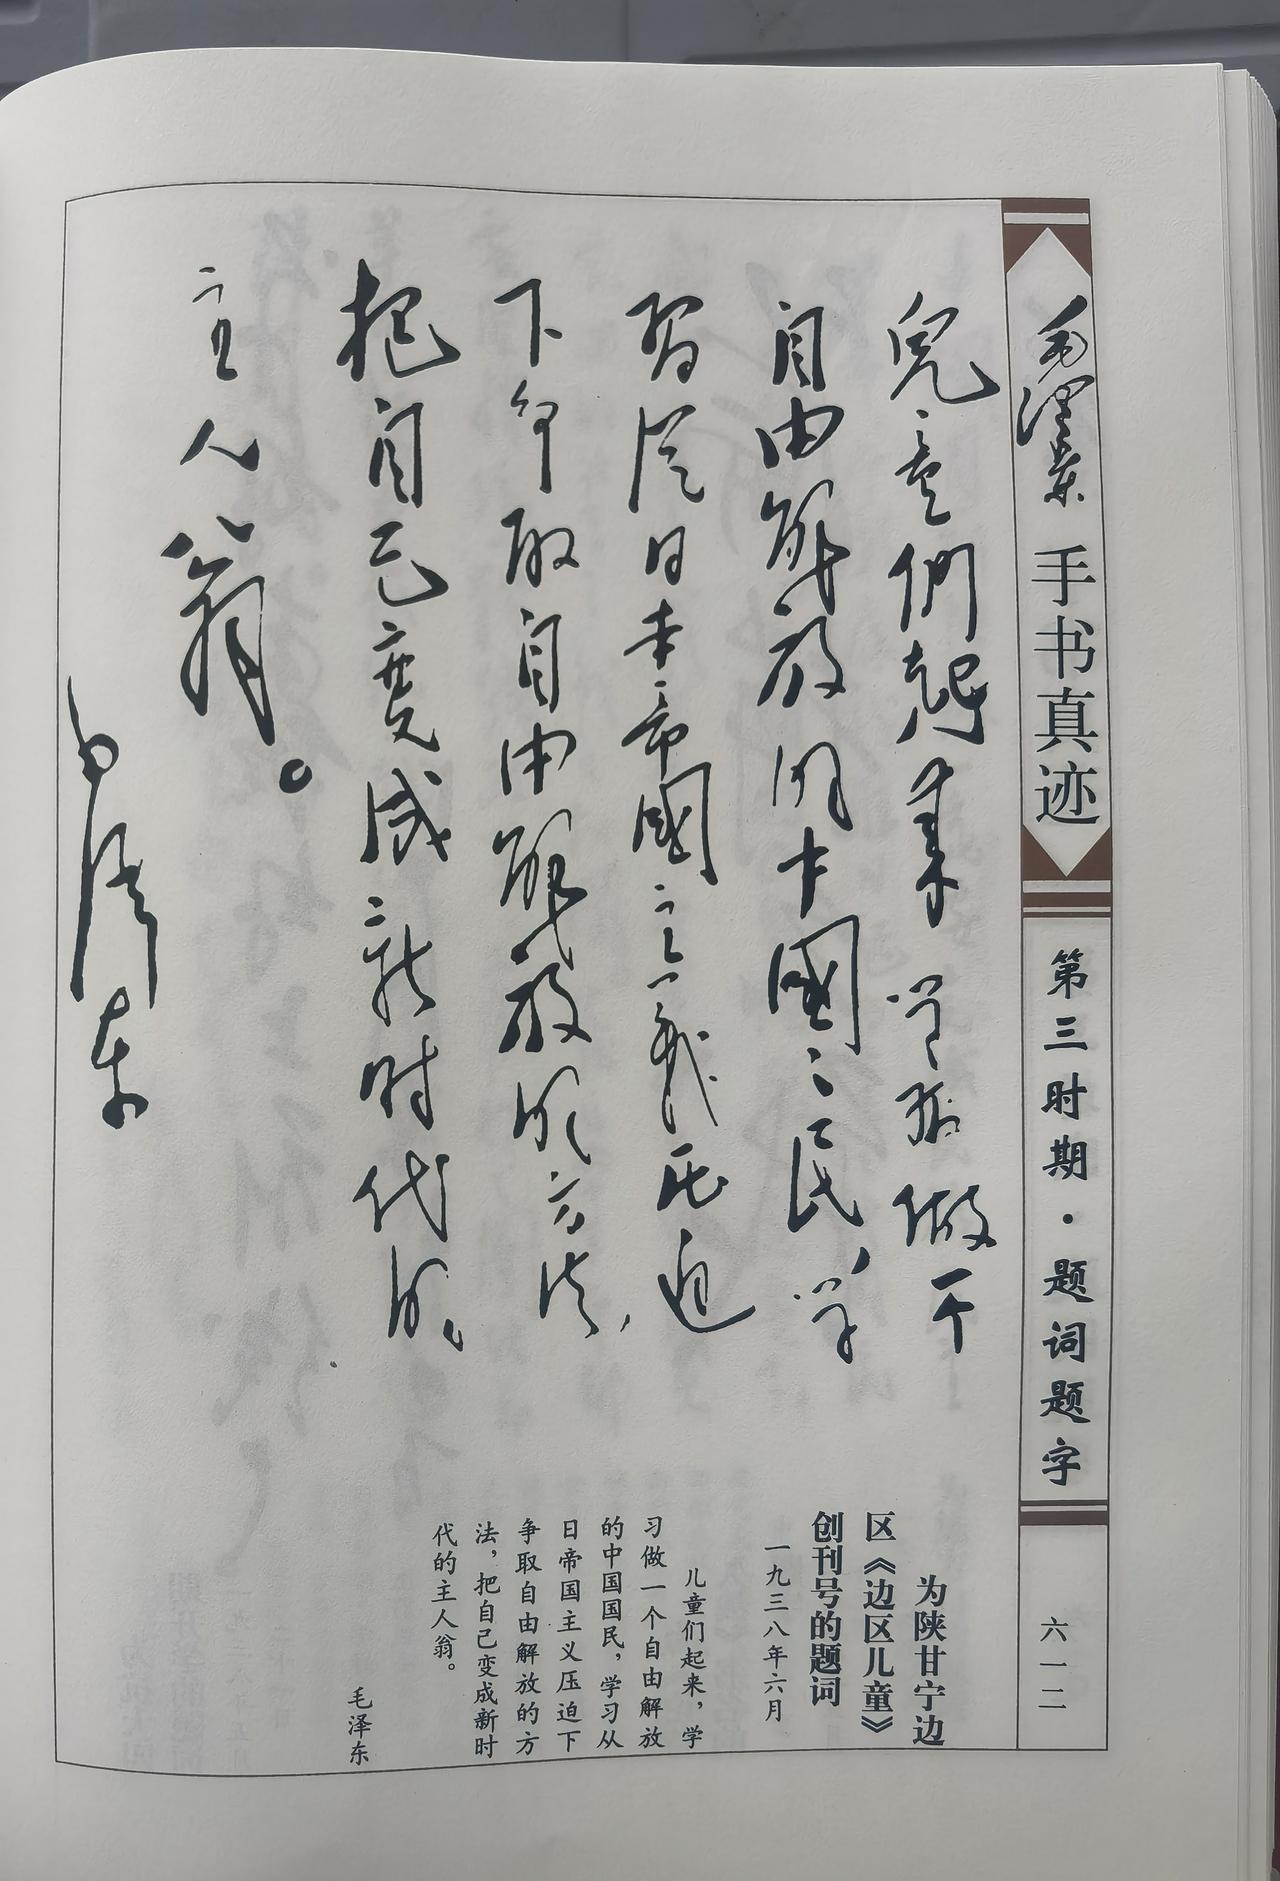 毛澤東 手书真迹
第三时期·题词题字
六一二
兒童們起来學習做一个
自由解放的中國〻民，学
習從日本帝國主義压迫
下争取自由解放的方法，
把自己变成新时代的
主人翁。
毛泽东
为陕甘宁边
区《边区儿童》
创刊号的题词
一九三八年六月
儿童们起来，学
习做一个自由解放
的中国国民，学习从
日帝国主义压迫下
争取自由解放的方
法，把自己变成新时
代的主人翁。
毛泽东